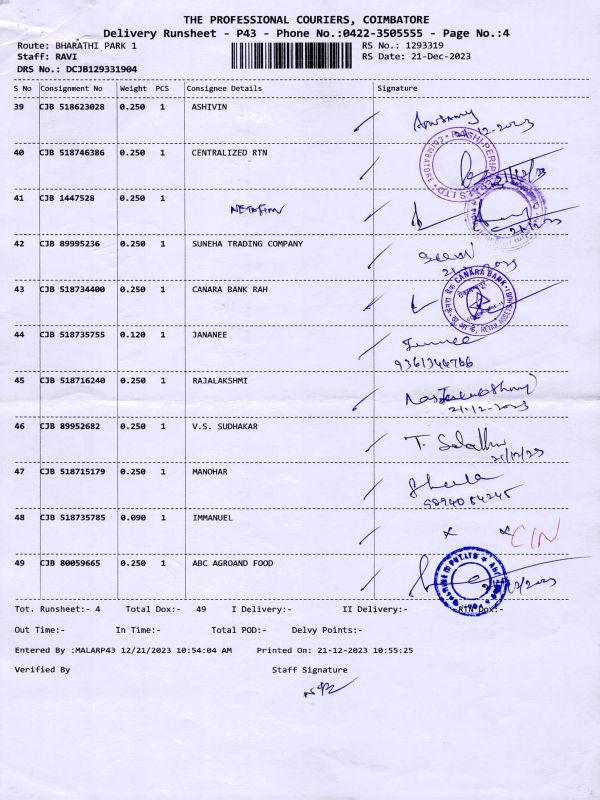 THE PROFESSIONAL COURIERS, COIMBATORE
Delivery Runsheet - P43 - Phone No.:0422-3505555 - Page No.:4
Route: BHARATHI PARK 1 RS No.: 1293319
Staff: RAVI RS Date: 21-Dec-2023
DRS No.: DCJB129331904
S No Consignment No Weight PCS Consignee Details Signature
39 CJB 518623028 0.250 1 ASHIVIN
21.12-2023
40 CJB 518746386 0.250 1 CENTRALIZED RTN
COIMBATORE
41 CJB 1447528 0.250 1
42 CJB 89995236 0.250 1 SUNEHA TRADING COMPANY
43 CJB 518734400 0.250 1 CANARA BANK RAH
CANARA BANK
44 CJB 518735755 0.120 1 JANANEE
9361344766
45 CJB 518716240 0.250 1 RAJALAKSHMI
21.12-2023
46 CJB 89952682 0.250 1 V.S. SUDHAKAR
21/12/23
47 CJB 518715179 0.250 1 MANOHAR
48 CJB 518735785 0.090 1 IMMANUEL
x x C/N
49 CJB 80059665 0.250 1 ABC AGROAND FOOD
Tot. Runsheet:- 4 Total Dox:- 49 I Delivery:- II Delivery:- RTN Dox:-
Out Time:- In Time:- Total POD:- Delvy Points:-
Entered By :MALARP43 12/21/2023 10:54:04 AM Printed On: 21-12-2023 10:55:25
Verified By Staff Signature